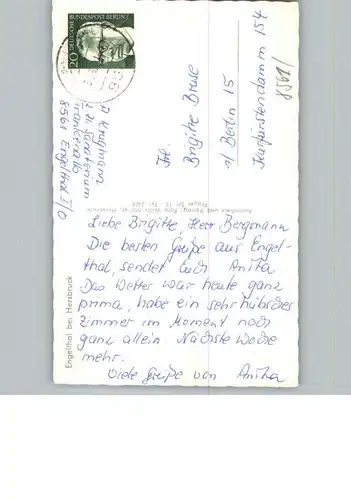 20 DEUTSCHE BUNDESPOST BERLIN
Frl.
Brigitte Bruse
1/Berlin 15
Kurfürstendamm 154
8561/
z. Zt. Sanatorium
Frankenalb
8561 Engelthal I/0
Engelthal bei Hersbruck
Liebe Brigitte, Herr Bergmann
Die besten Grüße aus Engel-
thal, sendet Euch Anita
Das Wetter war heute ganz
prima, habe ein sehr hübsches
Zimmer im Moment noch
ganz allein Nächste Woche
mehr.
Viele Grüße von Anita